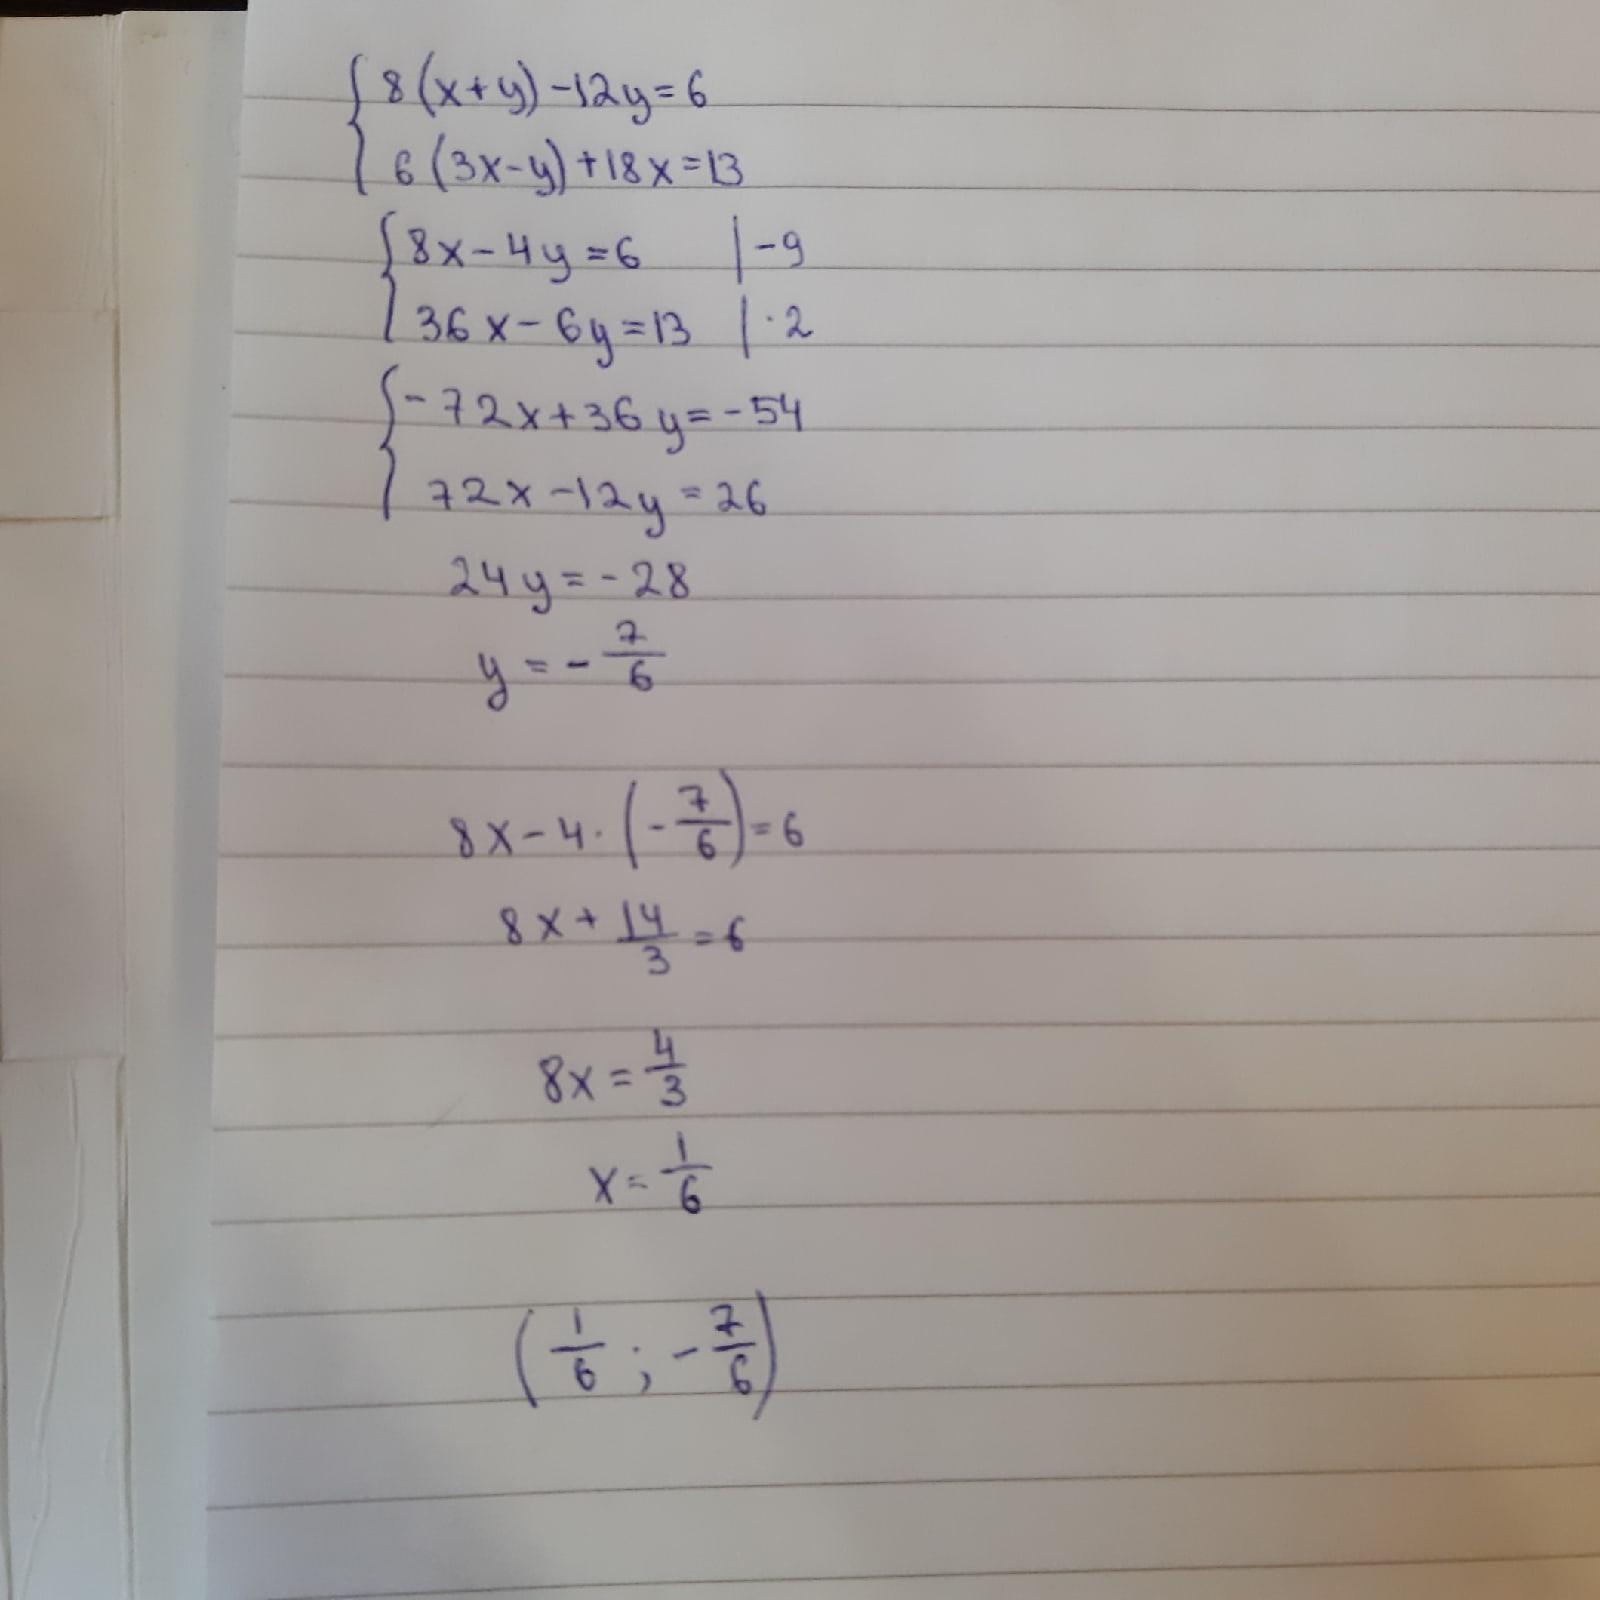 { 8(x+y)-12y=6
6(3x-y)+18x=13
{ 8x-4y=6 |-9
36x-6y=13 |·2
{ -72x+36y=-54
72x-12y=26
24y=-28
y=-7/6
8x-4·(-7/6)=6
8x+14/3=6
8x=4/3
x=1/6
(1/6;-7/6)